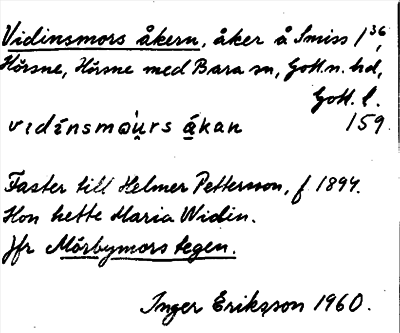 Vidinsmors åkern, åker å Smiss 1³⁶,
Hörsne, Hörsne med Bara sn, Gotl.n. hd,
Gotl. l.
vıdínsmɷ̀u̯rs á̱kan 159
Faster till Helmer Pettersson, f 1894.
Hon hette Maria Widin.
Jfr Mörbymors tegen.
Inger Eriksson 1960.